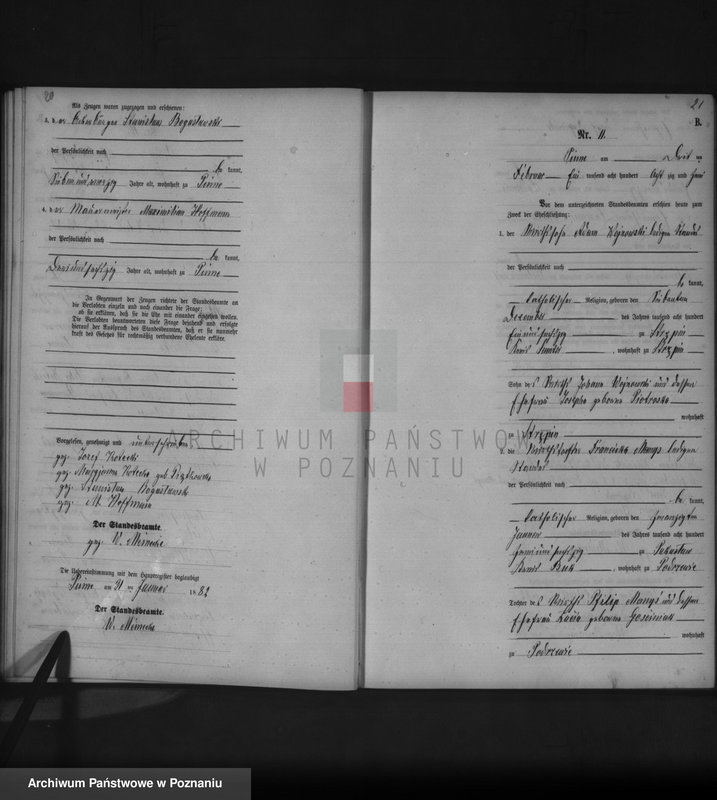 20
Als Zeugen waren zugezogen und erschienen:
3. der Ackerbürger Stanislaus Bogaslawski
der Persönlichkeit nach
be kannt,
Siebenundzwanzig Jahre alt, wohnhaft zu Pinne
4. der Maurermeister Maximilian Hoffmann
der Persönlichkeit nach
be kannt,
Jahre alt, wohnhaft zu Pinne
In Gegenwart der Zeugen richtete der Standesbeamte an
die Verlobten einzeln und nach einander die Frage:
ob sie erklären, daß sie die Ehe mit einander eingehen wollen.
Die Verlobten beantworteten diese Frage bejahend und erfolgte
hierauf der Ausspruch des Standesbeamten, daß er sie nunmehr
kraft des Gesetzes für rechtmäßig verbundene Eheleute erkläre.
Vorgelesen, genehmigt und unterschrieben
gez. Josef
gez. Maryjanna geb
gez. Stanislaus Bogaslawski
gez. M. Hoffmann
Der Standesbeamte.
gez. V. Meinecke
Die Uebereinstimmung mit dem Hauptregister beglaubigt
Pinne am 31 ten Januar 1882
Der Standesbeamte.
V. Meinecke
21
B.
Nr. 11.
Pinne am Drei ten
Februar Ein tausend acht hundert acht zig und zwei
Vor dem unterzeichneten Standesbeamten erschienen heute zum
Zweck der Eheschließung:
1. der Wirthssohn Adam Wojnowski ledigen Standes
der Persönlichkeit nach
be kannt,
katholischer Religion, geboren den Siebenten
Dezember des Jahres tausend acht hundert
zu Strzpin
Kreis Samter, wohnhaft zu Strzpin
Sohn des Wirths Johann Wojnowski und dessen
Ehefrau Josepha geborene Piotroska
wohnhaft
zu Strzpin
2. die Wirthstochter Franciska Manys ledigen
Standes
der Persönlichkeit nach
be kannt,
katholischer Religion, geboren den zwanzigsten
Januar des Jahres tausend acht hundert
zu Sekowo
Kreis Buk, wohnhaft zu Podrzewie
Tochter des Wirths Philip Manys und dessen
Ehefrau Lucia geborene Gosciniak
wohnhaft
zu Podrzewie
ARCHIWUM PAŃSTWOWE
W POZNANIU
Archiwum Państwowe w Poznaniu